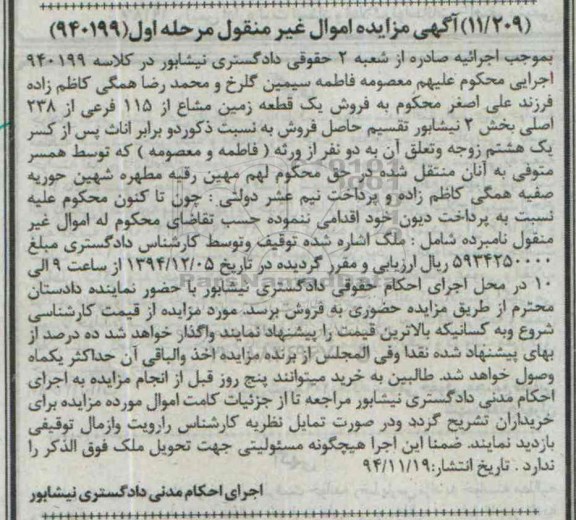 (۱۱/۲۰۹) آگهی مزایده اموال غیر منقول مرحله اول (۹۴۰۱۹۹)
بموجب اجرائیه صادره از شعبه ۲ حقوقی دادگستری نیشابور در کلاسه ۹۴۰۱۹۹
اجرایی محکوم علیهم معصومه فاطمه سیمین گلرخ و محمد رضا همگی کاظم زاده
فرزند علی اصغر محکوم به فروش یک قطعه زمین مشاع از ۱۱۵ فرعی از ۲۳۸
اصلی بخش ۲ نیشابور تقسیم حاصل فروش به نسبت ذکوردو برابر اناث پس از کسر
یک هشتم زوجه وتعلق آن به دو نفر از ورثه (فاطمه و معصومه) که توسط همسر
متوفی به آنان منتقل شده در حق محکوم لهم مهین رقیه مطهره شهین حوریه
صفیه همگی کاظم زاده و پرداخت نیم عشر دولتی : چون تا کنون محکوم علیه
نسبت به پرداخت دیون خود اقدامی ننموده حسب تقاضای محکوم له اموال غیر
منقول نامبرده شامل : ملک اشاره شده توقیف وتوسط کارشناس دادگستری مبلغ
۵۹۳۴۲۵۰۰۰۰ ریال ارزیابی و مقرر گردیده در تاریخ ۱۳۹۴/۱۲/۰۵ از ساعت ۹ الی
۱۰ در محل اجرای احکام حقوقی دادگستری نیشابور با حضور نماینده دادستان
محترم از طریق مزایده حضوری به فروش برسد. مورد مزایده از قیمت کارشناسی
شروع وبه کسانیکه بالاترین قیمت را پیشنهاد نمایند واگذار خواهد شد ده درصد از
بهای پیشنهاد شده نقدا وفی المجلس از برنده مزایده اخذ والباقی آن حداکثر یکماه
وصول خواهد شد. طالبین به خرید میتوانند پنج روز قبل از انجام مزایده به اجرای
احکام مدنی دادگستری نیشابور مراجعه تا از جزئیات کامت اموال مورده مزایده برای
خریداران تشریح گردد ودر صورت تمایل نظریه کارشناس رارویت وازمال توقیفی
بازدید نمایند. ضمنا این اجرا هیچگونه مسئولیتی جهت تحویل ملک فوق الذکر را
ندارد . تاریخ انتشار:۹۴/۱۱/۱۹
اجرای احکام مدنی دادگستری نیشابور